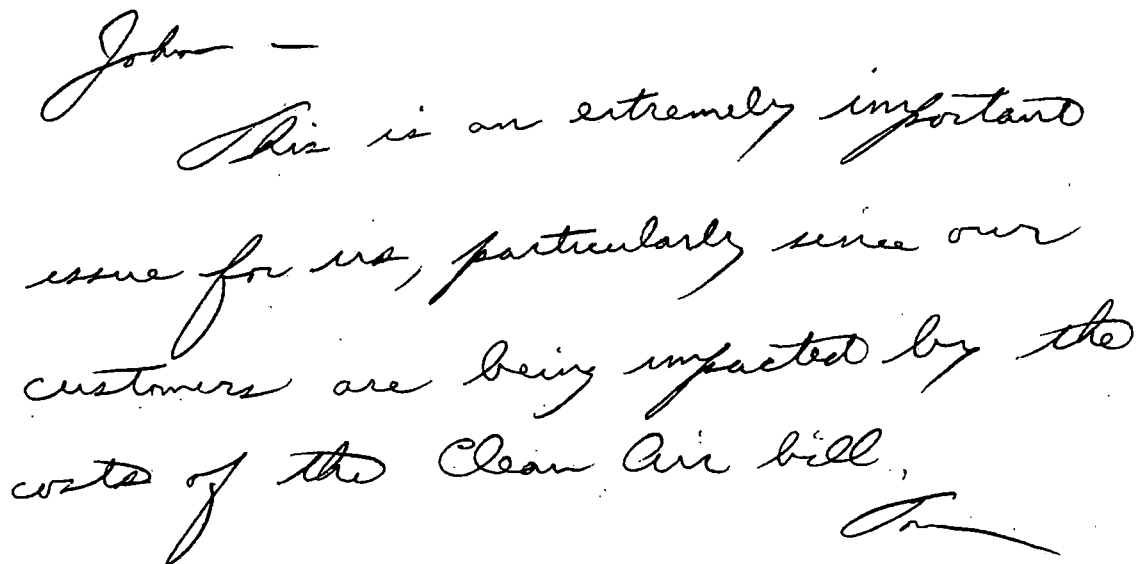 John —
This is an extremely important
issue for us, particularly since our
customers are being impacted by the
costs of the Clean Air bill.
Tom